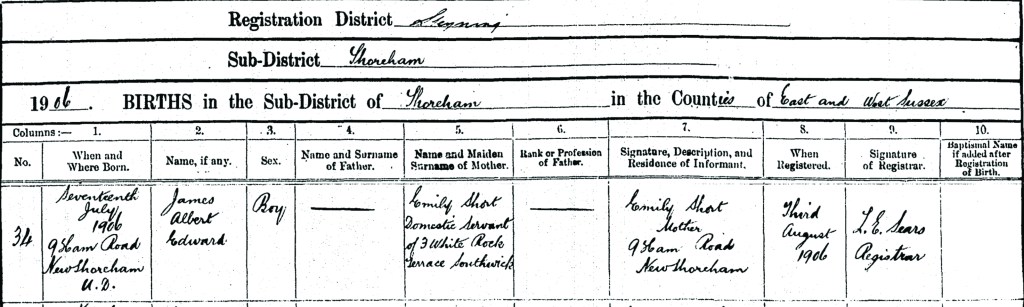 Registration District Steyning
Sub-District Shoreham
1906. BIRTHS in the Sub-District of Shoreham in the Counties of East and West Sussex
Columns:— 1. 2. 3. 4. 5. 6. 7. 8. 9. 10.
No. When and Where Born. Name, if any. Sex. Name and Surname of Father. Name and Maiden Surname of Mother. Rank or Profession of Father. Signature, Description, and Residence of Informant. When Registered. Signature of Registrar. Baptismal Name if added after Registration of Birth.
34
Seventeenth
July
1906
9 Ham Road
New Shoreham
U.D.
James
Albert
Edward
Boy
Emily Short
Domestic Servant
of 3 White Rock
Terrace Southwick
Emily Short
Mother
9 Ham Road
New Shoreham
Third
August
1906
L.E. Sears
Registrar